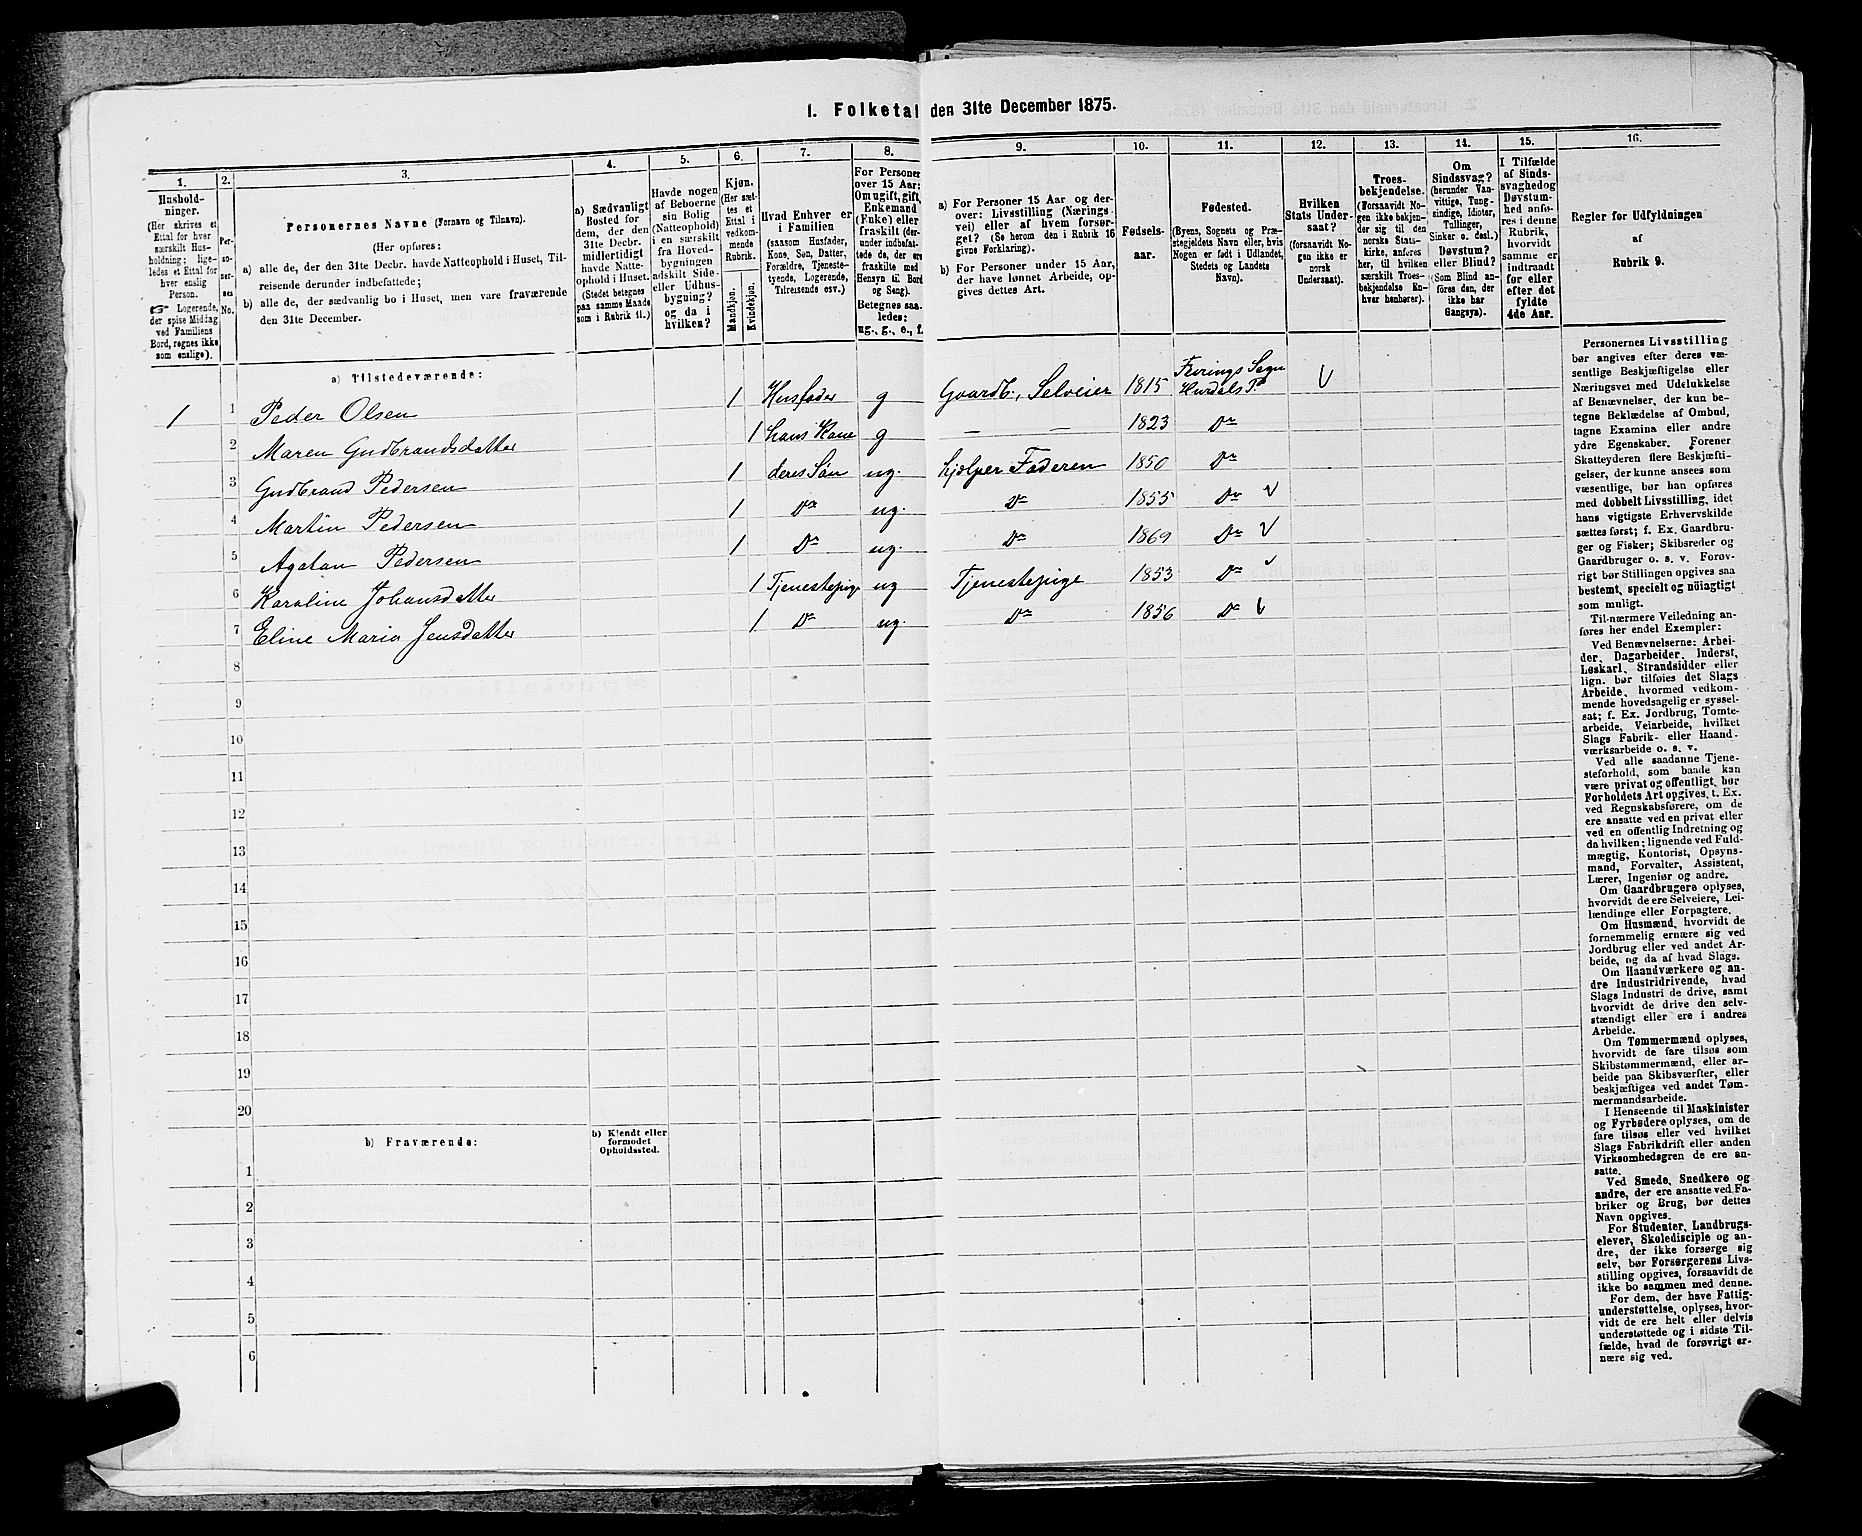 1. Folketal den 31te December 1875.
1. 2. 3. 4. 5. 6. 7. 8. 9. 10. 11. 12. 13. 14. 15. 16.
Husholdninger.
(Her skrives et
Ettal for hver
særskilt Husholdning; ligeledes
et Ettal for
hver enslig
Person.
Logerende,
der spise Middag
ved Familiens
Bord, regnes ikke
som enslige).
Personernes
No.
Personernes Navne (Fornavn og Tilnavn).
(Her opføres:
a) alle de, der den 31te Decbr. havde Natteophold i Huset, Tilreisende derunder indbefattede;
b) alle de, der sædvanlig bo i Huset, men vare fraværende
den 31te December.
a) Sædvanligt
Bosted for
dem, der den
31te Decbr.
midlertidigt
havde Natteophold i Huset.
(Stedet betegnes
paa samme Maade
som i Rubrik 11.)
Havde nogen
af Beboerne
sin Bolig
(Natteophold)
i en særskilt
fra Hovedbygningen
adskilt Side-
eller Udhusbygning?
og da i
hvilken?
Kjøn.
(Her sættes et
Ettal i
vedkommende
Rubrik.
Mandkjøn.
Kvindekjøn.
Hvad Enhver er
i Familien
(saasom Husfader,
Kone, Søn, Datter,
Forældre, Tjenestetyende, Logerende,
Tilreisende osv.)
For Personer
over 15 Aar:
Om ugift, gift,
Enkemand
(Enke) eller
fraskilt (derunder indbefattede, de, der ere
fraskilte med
Hensyn til Bord
og Seng).
Betegnes saaledes:
ug., g., e., f.
a) For Personer 15 Aar og derover: Livsstilling (Næringsvei) eller af hvem forsørget? (Se herom den i Rubrik 16
givne Forklaring).
b) For Personer under 15 Aar,
der have lønnet Arbeide, opgives dettes Art.
Fødselsaar.
Fødested.
(Byens, Sognets og Præstegjeldets Navn eller, hvis
Nogen er født i Udlandet,
Stedets og Landets
Navn).
Hvilken
Stats Undersaat?
(forsaavidt Nogen ikke er
norsk
Undersaat).
Troesbekjendelse.
(Forsaavidt Nogen ikke bekjender sig til den
norske Statskirke, anføres
her, til hvilken
særskilt Troesbekjendelse Enhver henhører).
Om
Sindssvag?
(herunder Vanvittige, Tungsindige, Idioter,
Tullinger,
Sinker o. desl.)
Døvstum?
eller Blind?
(Som Blind anføres den, der
ikke har
Gangsyn).
I Tilfælde
af Sindssvaghed og
Døvstumhed anføres i denne
Rubrik,
hvorvidt
samme er
indtraadt
før eller
efter det
fyldte
4de Aar.
Regler for Udfyldningen
af
Rubrik 9.
a) Tilstedeværende:
1 1 Peder Olsen 1 Husfader g Gaardb., Selveier 1815 Feirings Sogn Hurdals P.
2 Maren Gudbrandsdatter 1 hans Kone g — — 1823 Do
3 Gudbrand Pedersen 1 deres Søn ug. hjælper Faderen 1850 Do
4 Martin Pedersen 1 Do ug. Do 1855 Do
5 Agaton Pedersen 1 Do ug. Do 1869 Do
6 Karoline Johansdatter 1 Tjenestepige ug Tjenestepige 1853 Do
7 Eline Maria Jensdatter 1 Do ug. Do 1856 Do
8
9
10
11
12
13
14
15
16
17
18
19
20
b) Fraværende:
b) Kjendt eller
formodet
Opholdssted.
1
2
3
4
5
6
Personernes Livsstilling
bør angives efter deres væsentlige Beskjæftigelse eller
Næringsvei med Udelukkelse
af Benævnelser, der kun betegne Beklædelse af Ombud,
tagne Examina eller andre
ydre Egenskaber. Forener
Skatteyderen flere Beskjæftigelser, der kunne ansees som
væsentlige, bør han opføres
med dobbelt Livsstilling, idet
hans vigtigste Erhvervskilde
sættes først; f. Ex. Gaardbruger og Fisker; Skibsreder og
Gaardbruger o. s. v. Forøvrigt bør Stillingen opgives saa
bestemt, specielt og nøiagtigt
som muligt.
Til nærmere Veiledning anføres her endel Exempler:
Ved Benævnelserne: Arbeider, Dagarbeider, Inderst,
Løskarl, Strandsidder eller
lign. bør tilføies det Slags
Arbeide, hvormed vedkommende hovedsagelig er sysselsat; f. Ex. Jordbrug, Tomtearbeide, Veiarbeide, hvilket
Slags Fabrik- eller Haandværksarbeide o. s. v.
Ved alle saadanne Tjenesteforhold, som baade kan
være privat og offentligt, bør
Forholdets Art opgives, t. Ex.
ved Regnskabsførere, om de
ere ansatte ved en privat eller
ved en offentlig Indretning og
da hvilken; lignende ved Fuldmægtig, Kontorist, Opsynsmand, Forvalter, Assistent,
Lærer, Ingeniør og andre.
Om Gaardbrugere oplyses,
hvorvidt de ere Selveiere, Leilændinge eller Forpagtere.
Om Husmænd, hvorvidt de
fornemmelig ernære sig ved
Jordbrug eller ved andet Arbeide, og da af hvad Slags.
Om Haandværkere og andre Industridrivende, hvad
Slags Industri de drive, samt
hvorvidt de drive den selvstændigt eller ere i andres
Arbeide.
Om Tømmermænd oplyses,
hvorvidt de fare tilsøs som
Skibstømmermænd, eller arbeide paa Skibsværfter, eller
beskjæftiges ved andet Tømmermandsarbeide.
I Henseende til Maskinister
og Fyrbødere oplyses, om de
fare tilsøs eller ved hvilket
Slags Fabrikdrift eller anden
Virksomhedsgren de ere ansatte.
Ved Smede, Snedkere og
andre, der ere ansatte ved Fabriker og Brug, bør dettes
Navn opgives.
For Studenter, Landbrugselever, Skoledisciple og andre, der ikke forsørge sig
selv, bør Forsørgerens Livsstilling opgives, forsaavidt de
ikke bo sammen med denne.
For dem, der have Fattigunderstøttelse, oplyses, hvorvidt de ere helt eller delvis
understøttede og i sidste Tilfælde, hvad de forøvrigt ernære sig ved.